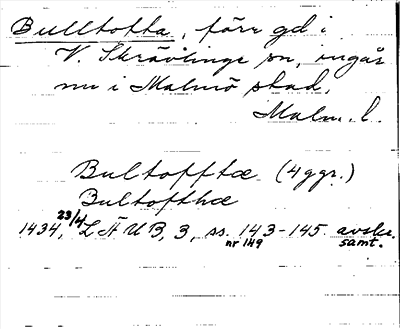 Bulltofta, förr gd i
V. Skrävlinge sn, ingår
nu i Malmö stad.
Malm. l.
Bultofftæ (4 ggr.)
Bultofthæ
1434, 23/4 LÄUB, 3, ss. 143-145. avskr.
nr 149 samt.